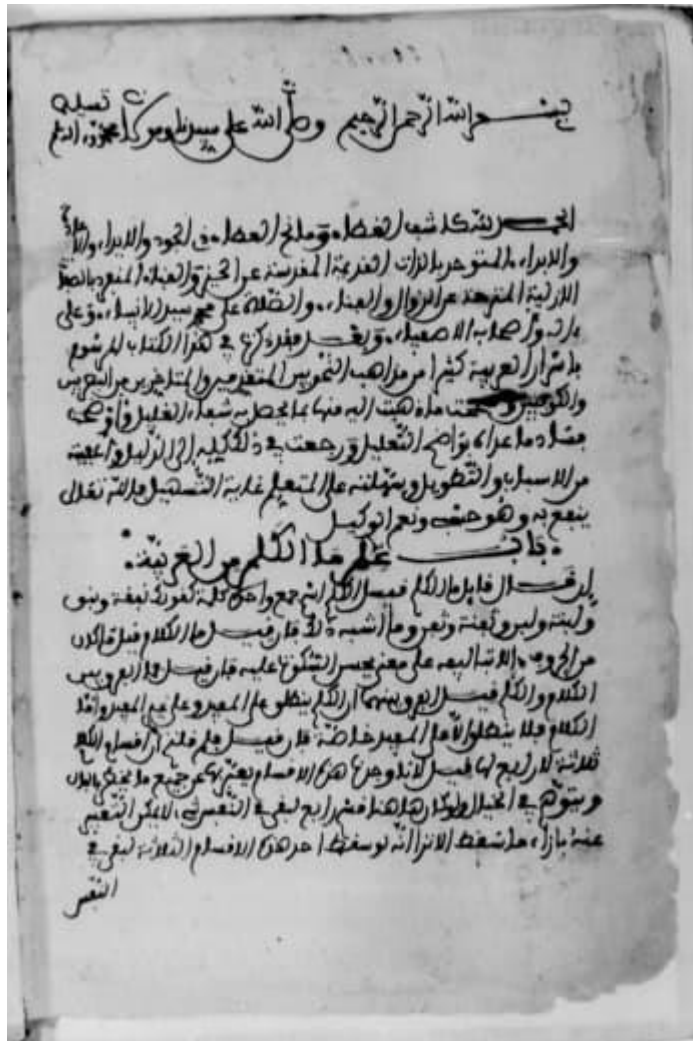 بسم الله الرحمن الرحيم وصلى الله على سيدنا ومولانا محمد وآله
الحمد لله كاشف الغطاء ومانح العطاء ذي الجود والايداء والاعادة
والابداء المتوحد بالذات القديمة المقدسة عن الحيز والفناء المنفرد بالصفات
الازلية المنزهة عن الزوال والفناء والصلاة على محمد سيد الانبياء وعلى
ءاله وأصحابه الاصفياء وبعد فقد ذكرت في هذا الكتاب المرسوم
باسرار العربية كثيرا من مذاهب النحويين المتقدمين والمتاخرين من البصريين
والكوفيين وصححت ما ذهبت اليه منها بما يحصل به شفاء الغليل وأوضحت
فساد ما عداه بواضح التعليل ورجعت في ذلك كله إلى الدليل وأعفيته
من الاسهاب والتطويل وسهلته على المتعلم غاية التسهيل فالله تعالى
ينفع به وهو حسبي ونعم الوكيل
باب علم ما الكلم من العربية
إن قال قايل ما الكلم قيل الكلم اسم جنس واحدته كلمة كقولك نبقة ونبق
ولبنة ولبن وثفنة وثفن وما أشبه ذلك فان قيل ما الكلام قيل ما كان
من الحروف دالا بتاليفه على معنى يحسن السكوت عليه فان قيل ما الفرق بين
الكلام والكلم قيل الفرق بينهما أن الكلم ينطلق على المفيد وعلى غير المفيد وأما
الكلام فلا ينطلق إلا على المفيد خاصة فان قيل فلم قلتم أن اقسام الكلم
ثلاثة لا رابع لها قيل لانا وجدنا هذه الاقسام يعبر بها عن جميع ما يخطر بالبال
ويتوهم في الخيال ولو كان هاهنا قسم رابع لبقي في النفس شيء لا يمكن التعبير
عنه بازاء ما سقط الا ترا أنه لو سقط احد هذه الاقسام الثلاثة لبقي في
النفس